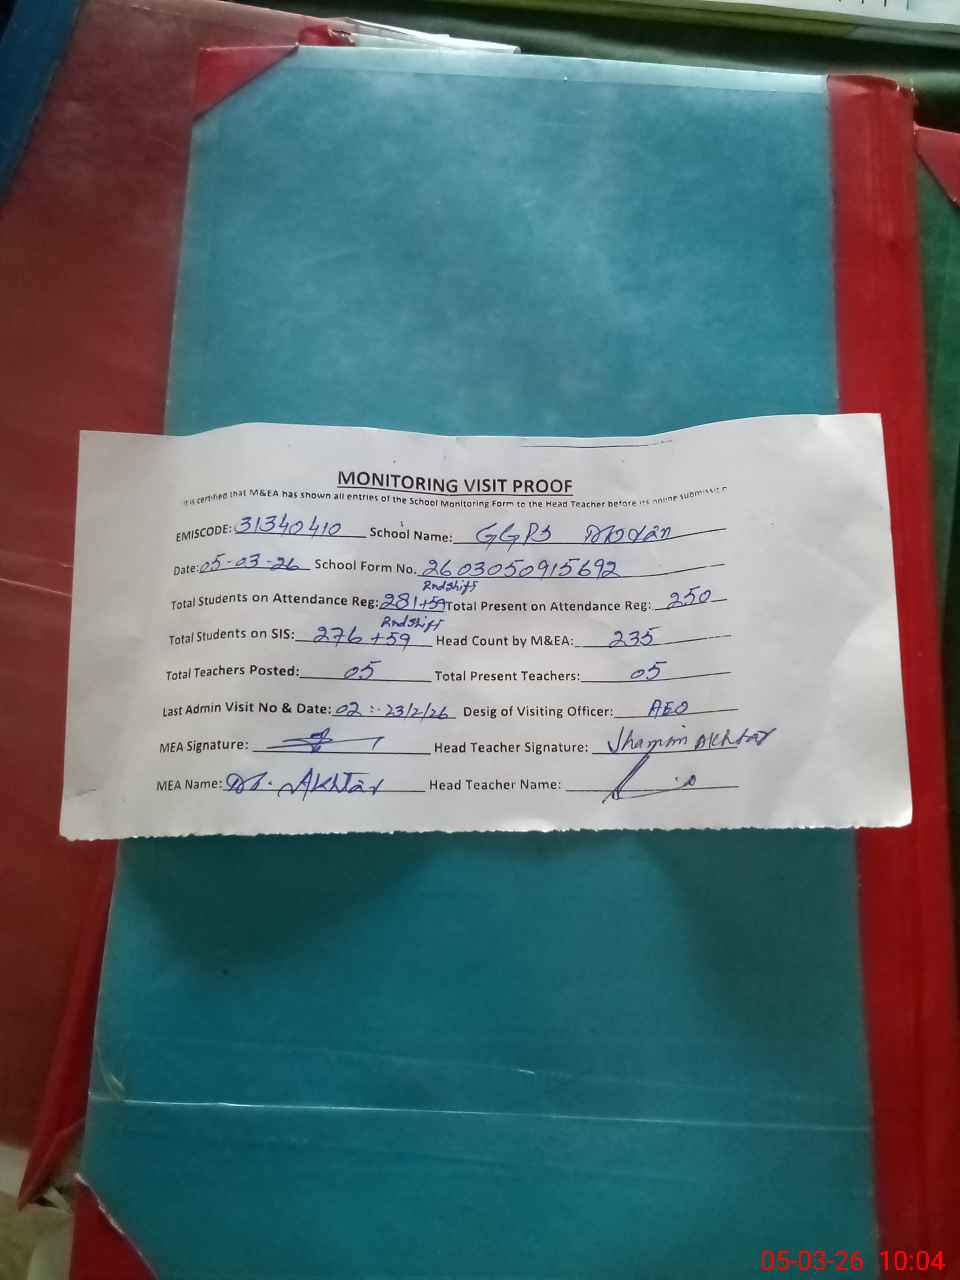 MONITORING VISIT PROOF
It is certified that M&EA has shown all entries of the School Monitoring Form to the Head Teacher before its online submission
EMISCODE: 31340410 School Name: GGPS
Date: 05-03-26 School Form No. 2603050915692
2nd Shift
Total Students on Attendance Reg: 281+59 Total Present on Attendance Reg: 250
2nd Shift
Total Students on SIS: 276+59 Head Count by M&EA: 235
Total Teachers Posted: 05 Total Present Teachers: 05
Last Admin Visit No & Date: 02 :- 23/2/26 Desig of Visiting Officer: AEO
MEA Signature: Head Teacher Signature: Shamim Akhtar
MEA Name: M. Akhtar Head Teacher Name:
05-03-26 10:04